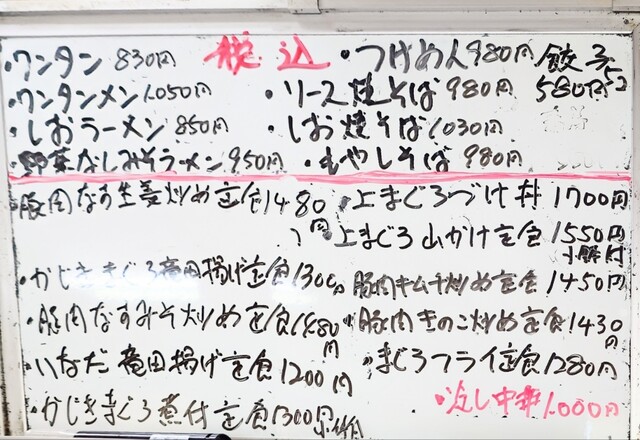 税込
・ワンタン 830円
・ワンタンメン 1.050円
・しおラーメン 850円
・野菜なしみそラーメン 950円
・つけめん 980円
・ソース焼そば 980円
・しお焼そば 1030円
・もやしそば 980円
餃子
580円
・豚肉なす生姜炒め定食 1480円
・かじきまぐろ竜田揚げ定食 1300円
・豚肉なすみそ炒め定食 1480円
・いなだ竜田揚げ定食 1200円
・かじきまぐろ煮付定食 1300円
・上まぐろづけ丼 1700円
・上まぐろ山かけ定食 1550円
・豚肉キムチ炒め定食 1450円
・豚肉きのこ炒め定食 1430円
・まぐろフライ定食 1280円
・冷し中華 1.000円